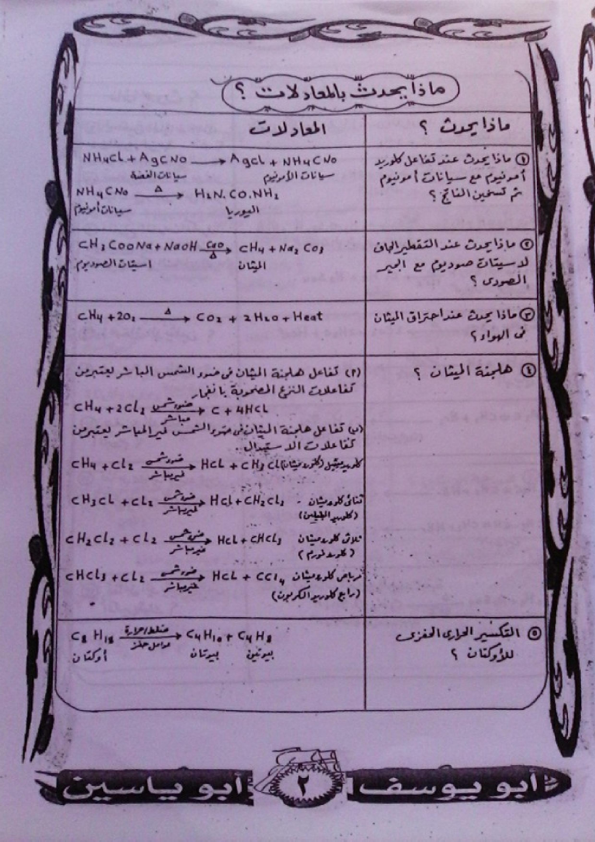 ماذا يحدث بالمعادلات ؟
ماذا يحدث ؟
المعادلات
① ماذا يحدث عند تفاعل كلوريد
أمونيوم مع سيانات أمونيوم
ثم تسخين الناتج ؟
NH4Cl + AgCNO → AgCl + NH4CNO
سيانات الفضة سيانات الأمونيوم
NH4CNO Δ→ H2N.CO.NH2
سيانات أمونيوم اليوريا
② ماذا يحدث عند التقطير الجاف
لاسيتات صوديوم مع الجير
الصودى ؟
CH3COONa + NaOH CaO→Δ CH4 + Na2CO3
اسيتات الصوديوم الميثان
③ ماذا يحدث عند احتراق الميثان
فى الهواء ؟
CH4 + 2O2 Δ→ CO2 + 2H2O + Heat
④ هلجنة الميثان ؟
(أ) تفاعل هلجنة الميثان فى ضوء الشمس المباشر يعتبر من
تفاعلات النزع المصحوبة بانفجار
CH4 + 2Cl2 ضوء شمس→مباشر C + 4HCl
(ب) تفاعل هلجنة الميثان فى ضوء الشمس غير المباشر يعتبر من
تفاعلات الاستبدال..
CH4 + Cl2 ضوء شمس→غير مباشر HCl + CH3Cl كلوريد ميثيل (كلوروميثان)
CH3Cl + Cl2 ضوء شمس→غير مباشر HCl + CH2Cl2 ثنائى كلوروميثان
CH2Cl2 + Cl2 ضوء شمس→غير مباشر HCl + CHCl3 ثلاثى كلوروميثان
(كلوروفورم)
CHCl3 + Cl2 ضوء شمس→غير مباشر HCl + CCl4 رباعى كلوروميثان
(رابع كلوريد الكربون)
⑤ التكسير الحرارى الحفزى
للأوكتان ؟
C8H18 ضغط / حرارة→عوامل حفز C4H10 + C4H8
أوكتان بيوتان بيوتين
أبو يوسف ٢ أبو ياسين